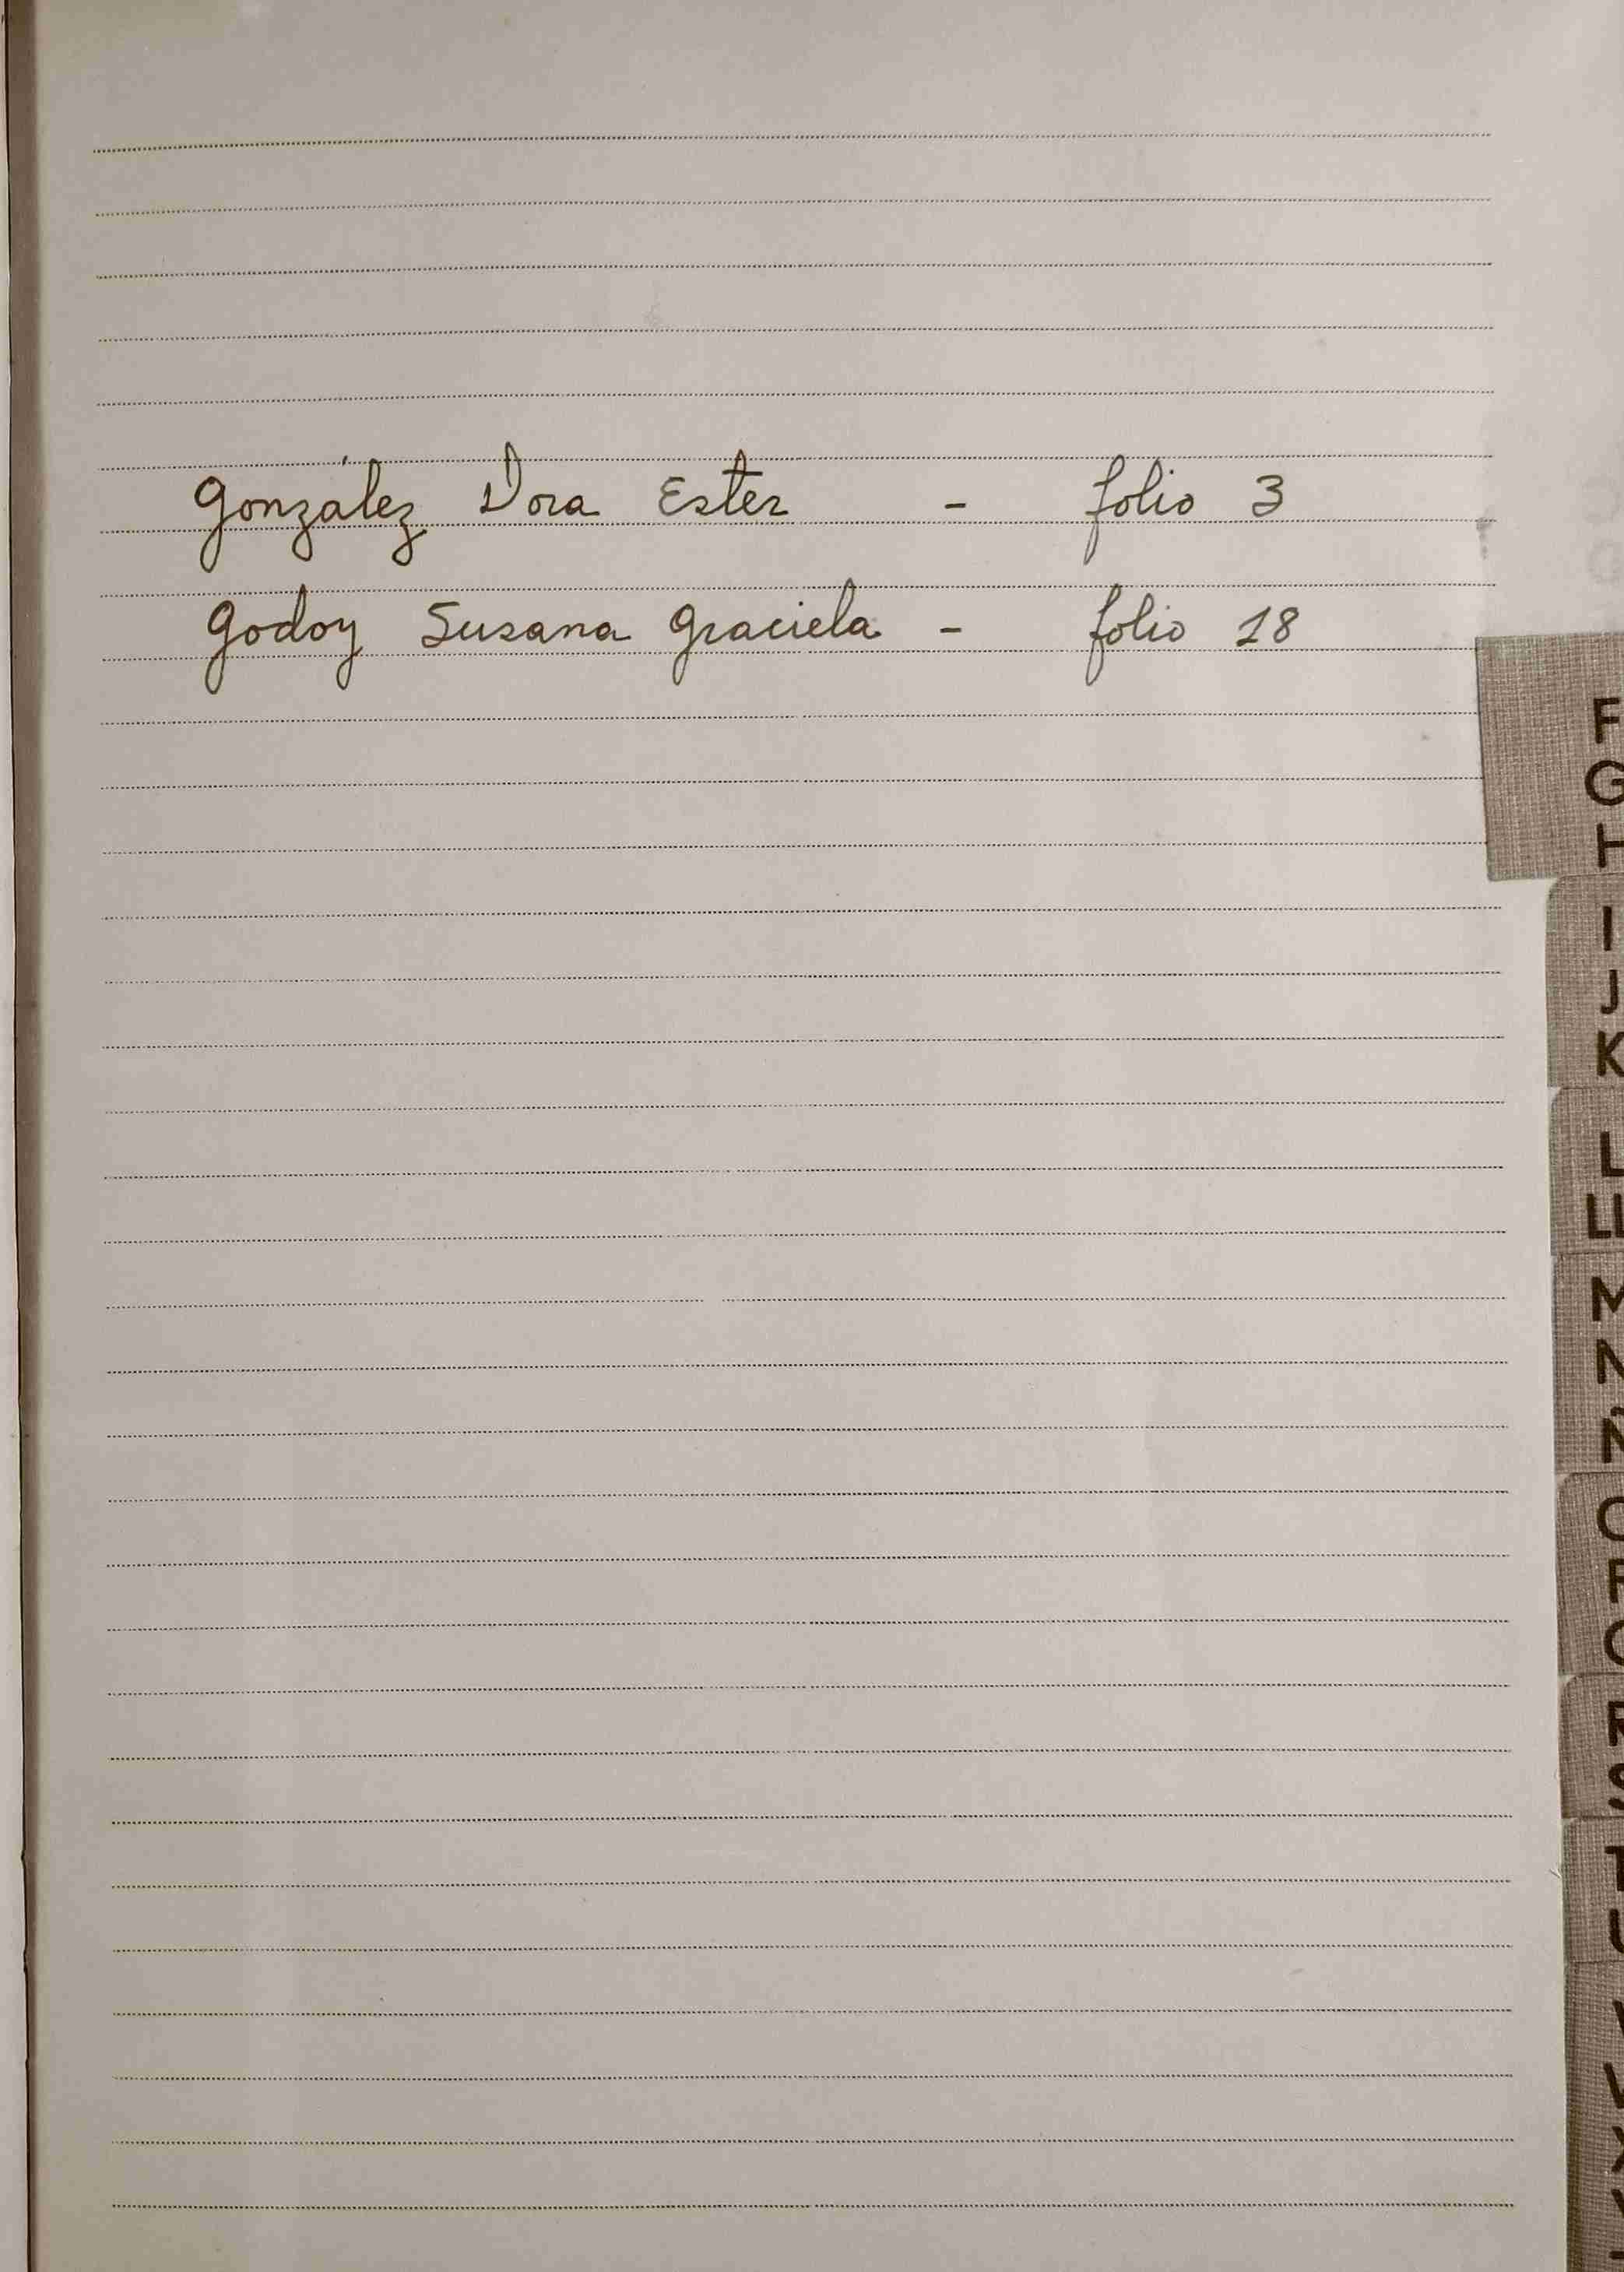 González Dora Ester - folio 3
Godoy Susana Graciela - folio 18
F
G
H
I
J
K
L
LL
M
N
Ñ
O
P
Q
R
S
T
U
V